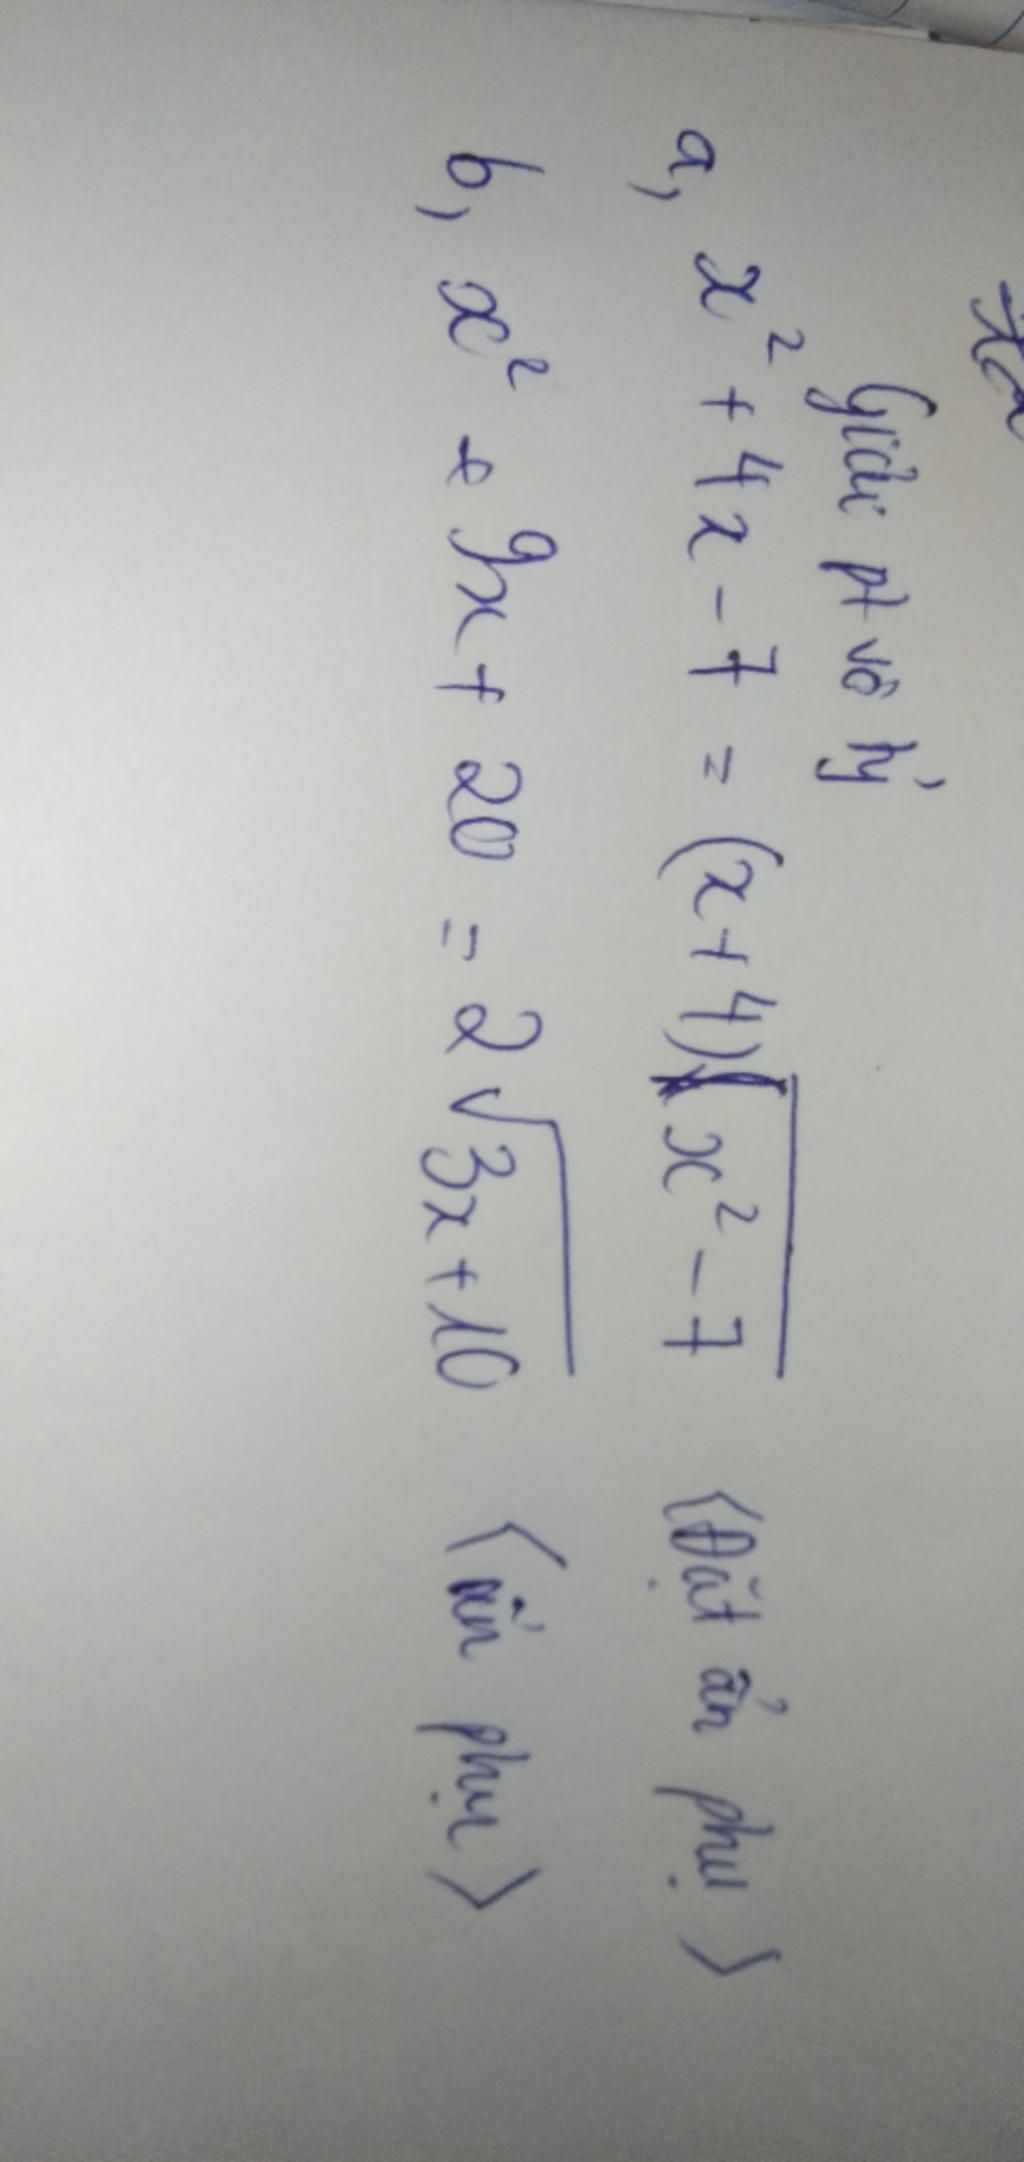 Giải pt vô tỷ
a, x² + 4x - 7 = (x+4)√x² - 7 <Đặt ẩn phụ>
b, x² + 9x + 20 = 2√3x+10 <ẩn phụ>